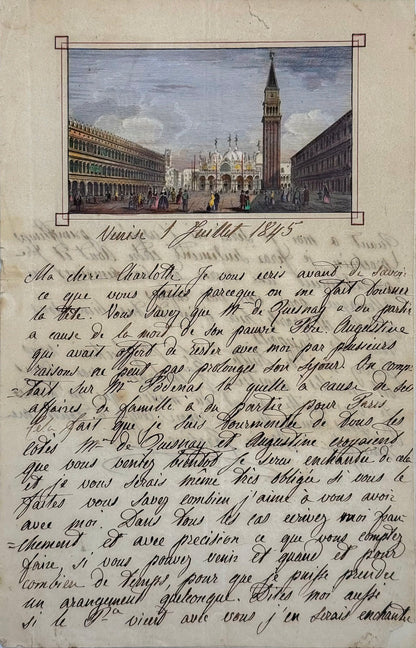 Venise 1 Juillet 1845
Ma chere Charlotte je vous ecris avant de savoir
ce que vous faites parceque on me fait tourner
la tête. Vous savez que Mme de Quesnay a du partir
a cause de la mort de son pauvre Père Augustine
qui avait offert de rester avec moi par plusieurs
raisons ne peut pas prolonger son sejour. On comp=
=tait sur Mme la quelle a cause de ses
affaires de famille a du partir pour Paris
fait que je suis tourmentée de tous les
cotés Mme de Quesnay et Augustine croyaient
que vous veniez bientot je serai enchantée de cela
et je vous serais meme très obligée si vous le
faites vous savez combien j'aime a vous avoir
avec moi. Dans tous les cas ecrivez moi fran
=chement et avec precision ce que vous comptez
faire, si vous pouvez venir et quand et pour
combien de temps, pour que je puisse prendre
un arangement quelconque. Dites moi aussi
si le vient avec vous j'en serais enchantée